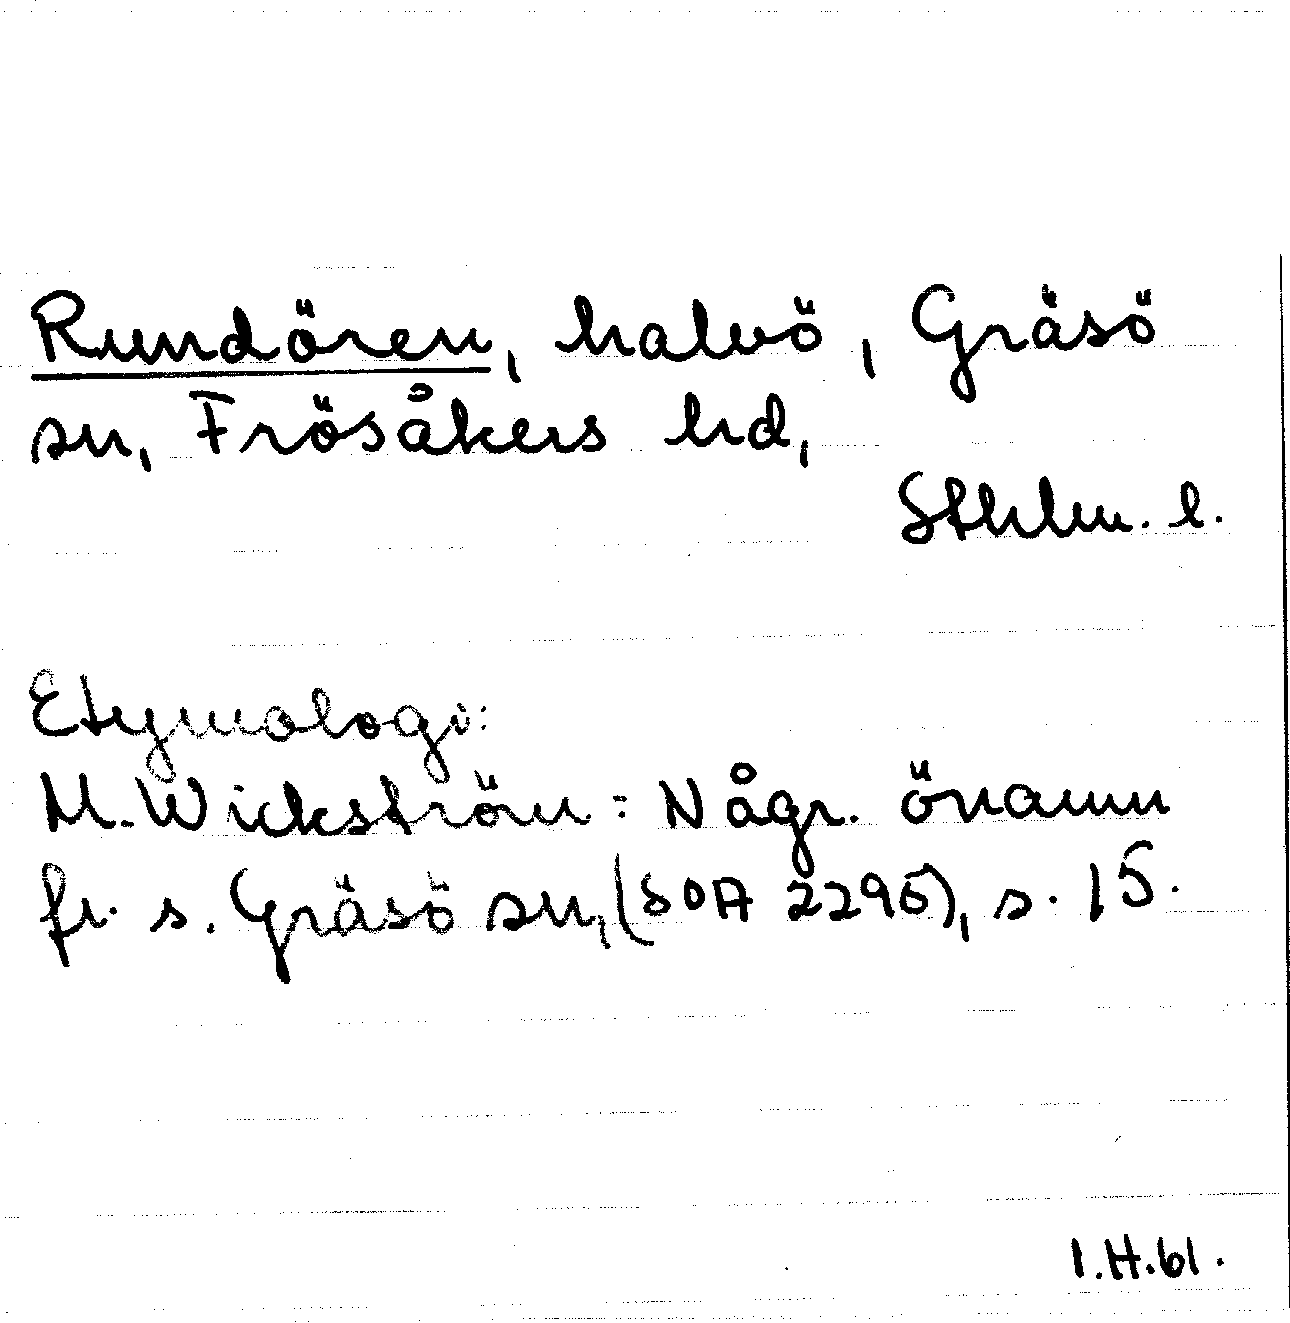 Rundören, halvö, Gräsö
sn, Frösåkers hd,
Sthlm. l.
Etymologi:
M. Wickström: Några. önamn
fr. s. Gräsö sn, (SOA 2295), s. 15.
I.H.61.